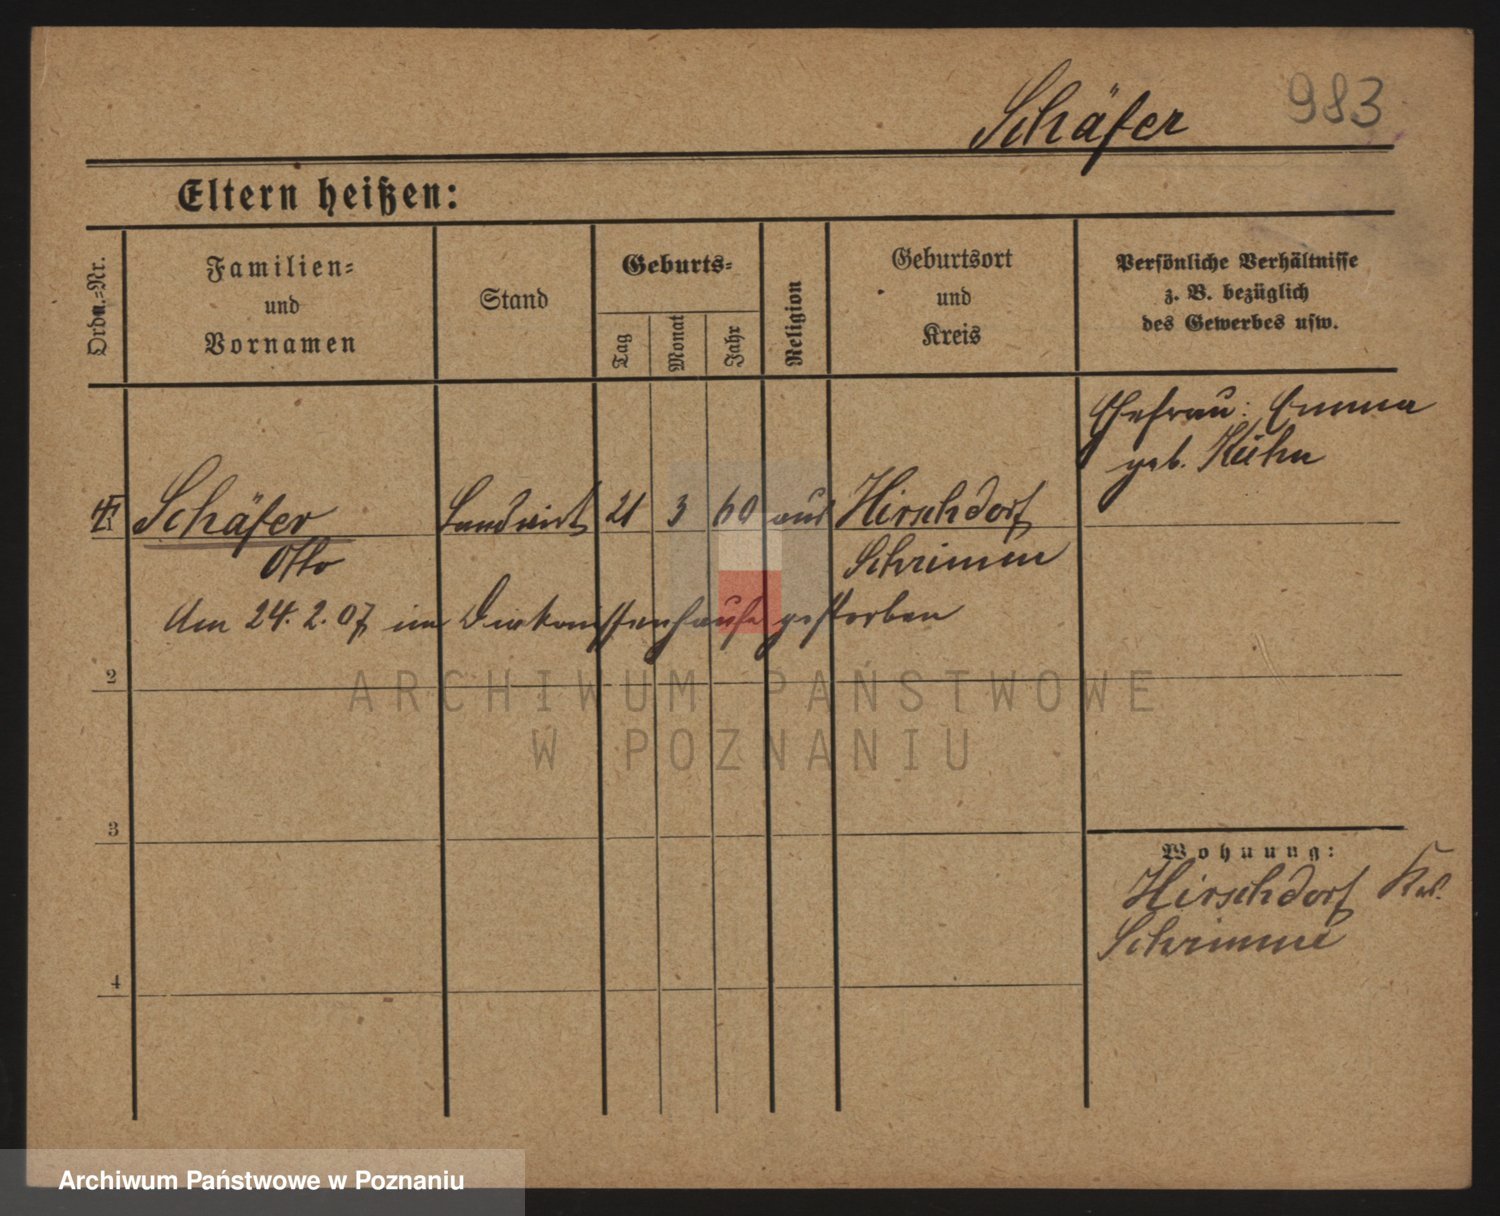 983
Schäfer
Eltern heißen:
Ordn.-Nr.
Familien-
und
Vornamen
Stand
Geburts-
Tag
Monat
Jahr
Religion
Geburtsort
und
Kreis
Persönliche Verhältnisse
z. B. bezüglich
des Gewerbes usw.
Ehefrau: Emma
geb. Kühn
Schäfer Landwirt 21 3 60 aus Hirschdorf
Otto Schrimm
Am 24. 2. 07 im Diakonissenhause gestorben
2
ARCHIWUM PAŃSTWOWE
W POZNANIU
3
Wohnung:
Hirschdorf Krs.
Schrimm
4
Archiwum Państwowe w Poznaniu